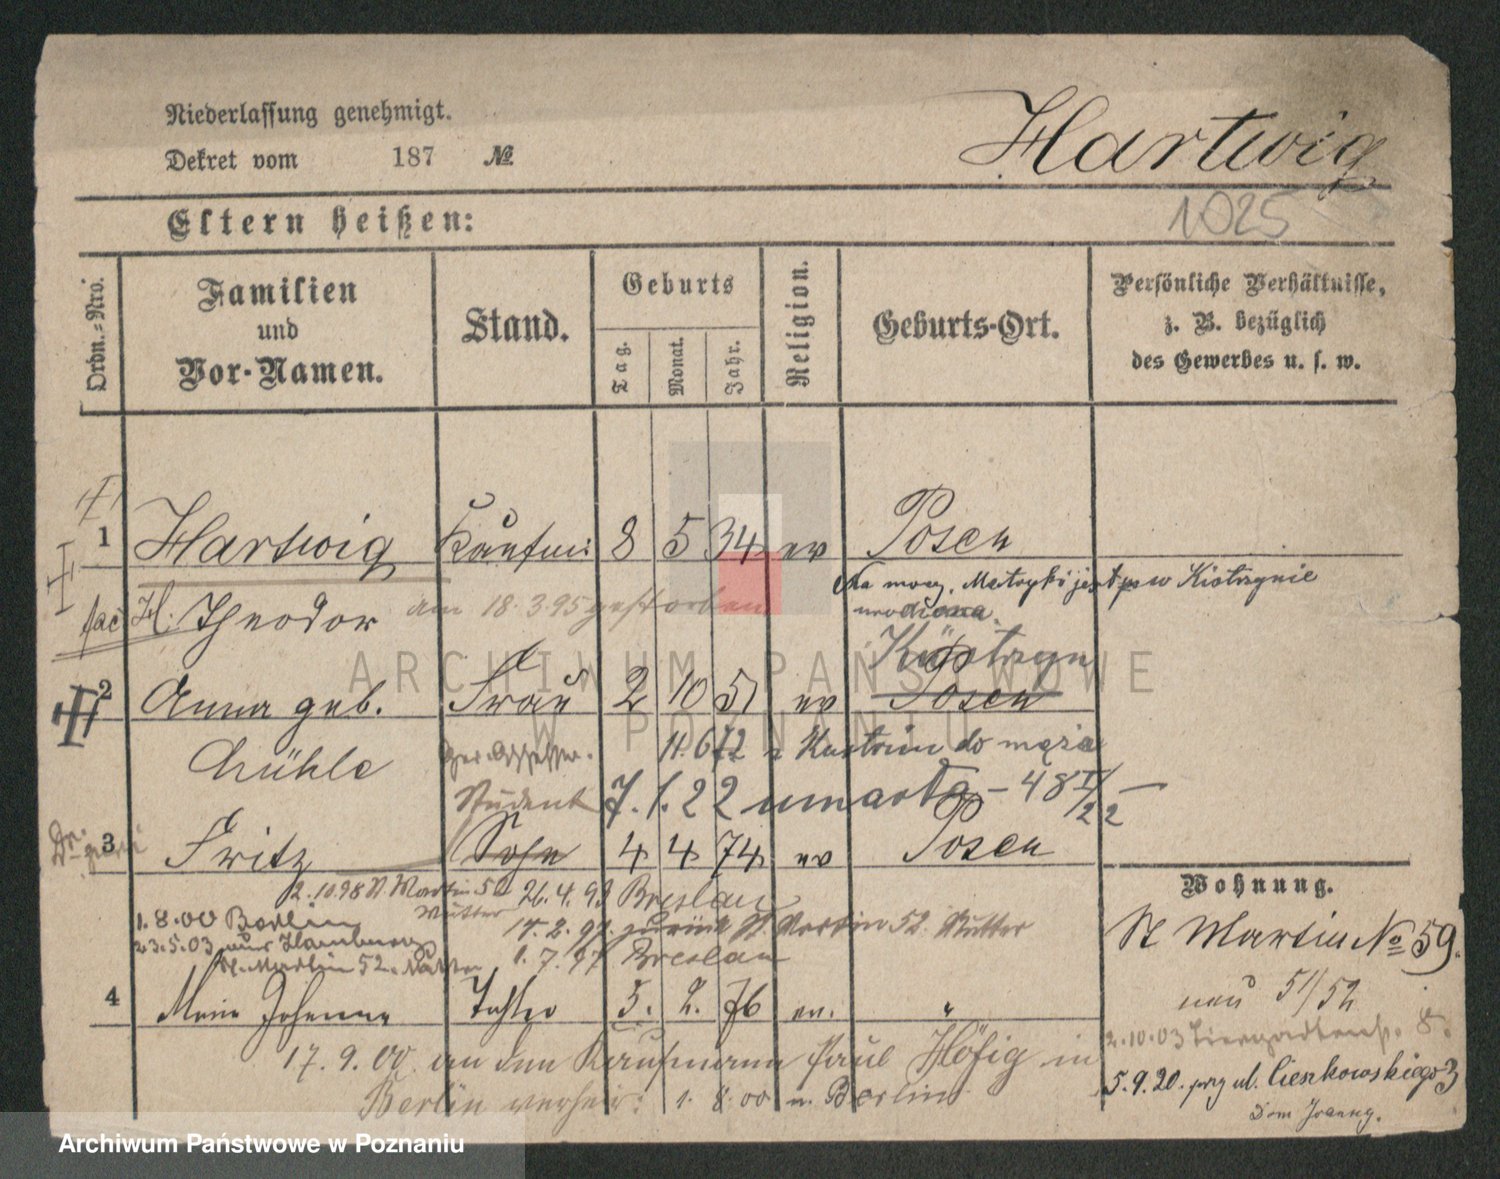 Niederlassung genehmigt.
Dekret vom 187 №
Hartwig
1025
Eltern heißen:
Ordn.=Nro.
Familien
und
Vor-Namen.
Stand.
Geburts
Tag.
Monat.
Jahr.
Religion.
Geburts-Ort.
Persönliche Verhältnisse,
z. B. bezüglich
des Gewerbes u. s. w.
1 Hartwig Kaufm: 8 5 34 ev Posen
Na mocy. Metryki jest w Kiotrzynie
urodzona.
H. Theodor am 18.3.95 gestorben
Köstrzyn
2 Anna geb. Frau 2 10 51 ev Posen
Mühle Ger. Assessor. 11.6.72 z Kustrin do męża
Student 7.1.22 umarła - 48 I/22
3 Fritz Sohn 4 4 74 ev Posen
Wohnung.
2.10.98 St Martin 52 Mutter
26.4.93 Breslau
1.8.00 Berlin
17.2.97. zurück St. Martin 52. Mutter
23.5.03 aus Hamburg
St. Martin 52. Mutter
1.7.97 Breslau
St Martin № 59.
neu 51/52
4 Marie Johanna Tochter 5. 2. 76 ev. "
17.9.00 an den Kaufmann Paul Höfig in
Berlin verheir: 1.8.00 n. Berlin
2.10.03 Tiergartenstr. 8.
5.9.20. przy ul. Cieszkowskiego 3
Dom Joanny.
ARCHIWUM PAŃSTWOWE
W POZNANIU
Archiwum Państwowe w Poznaniu